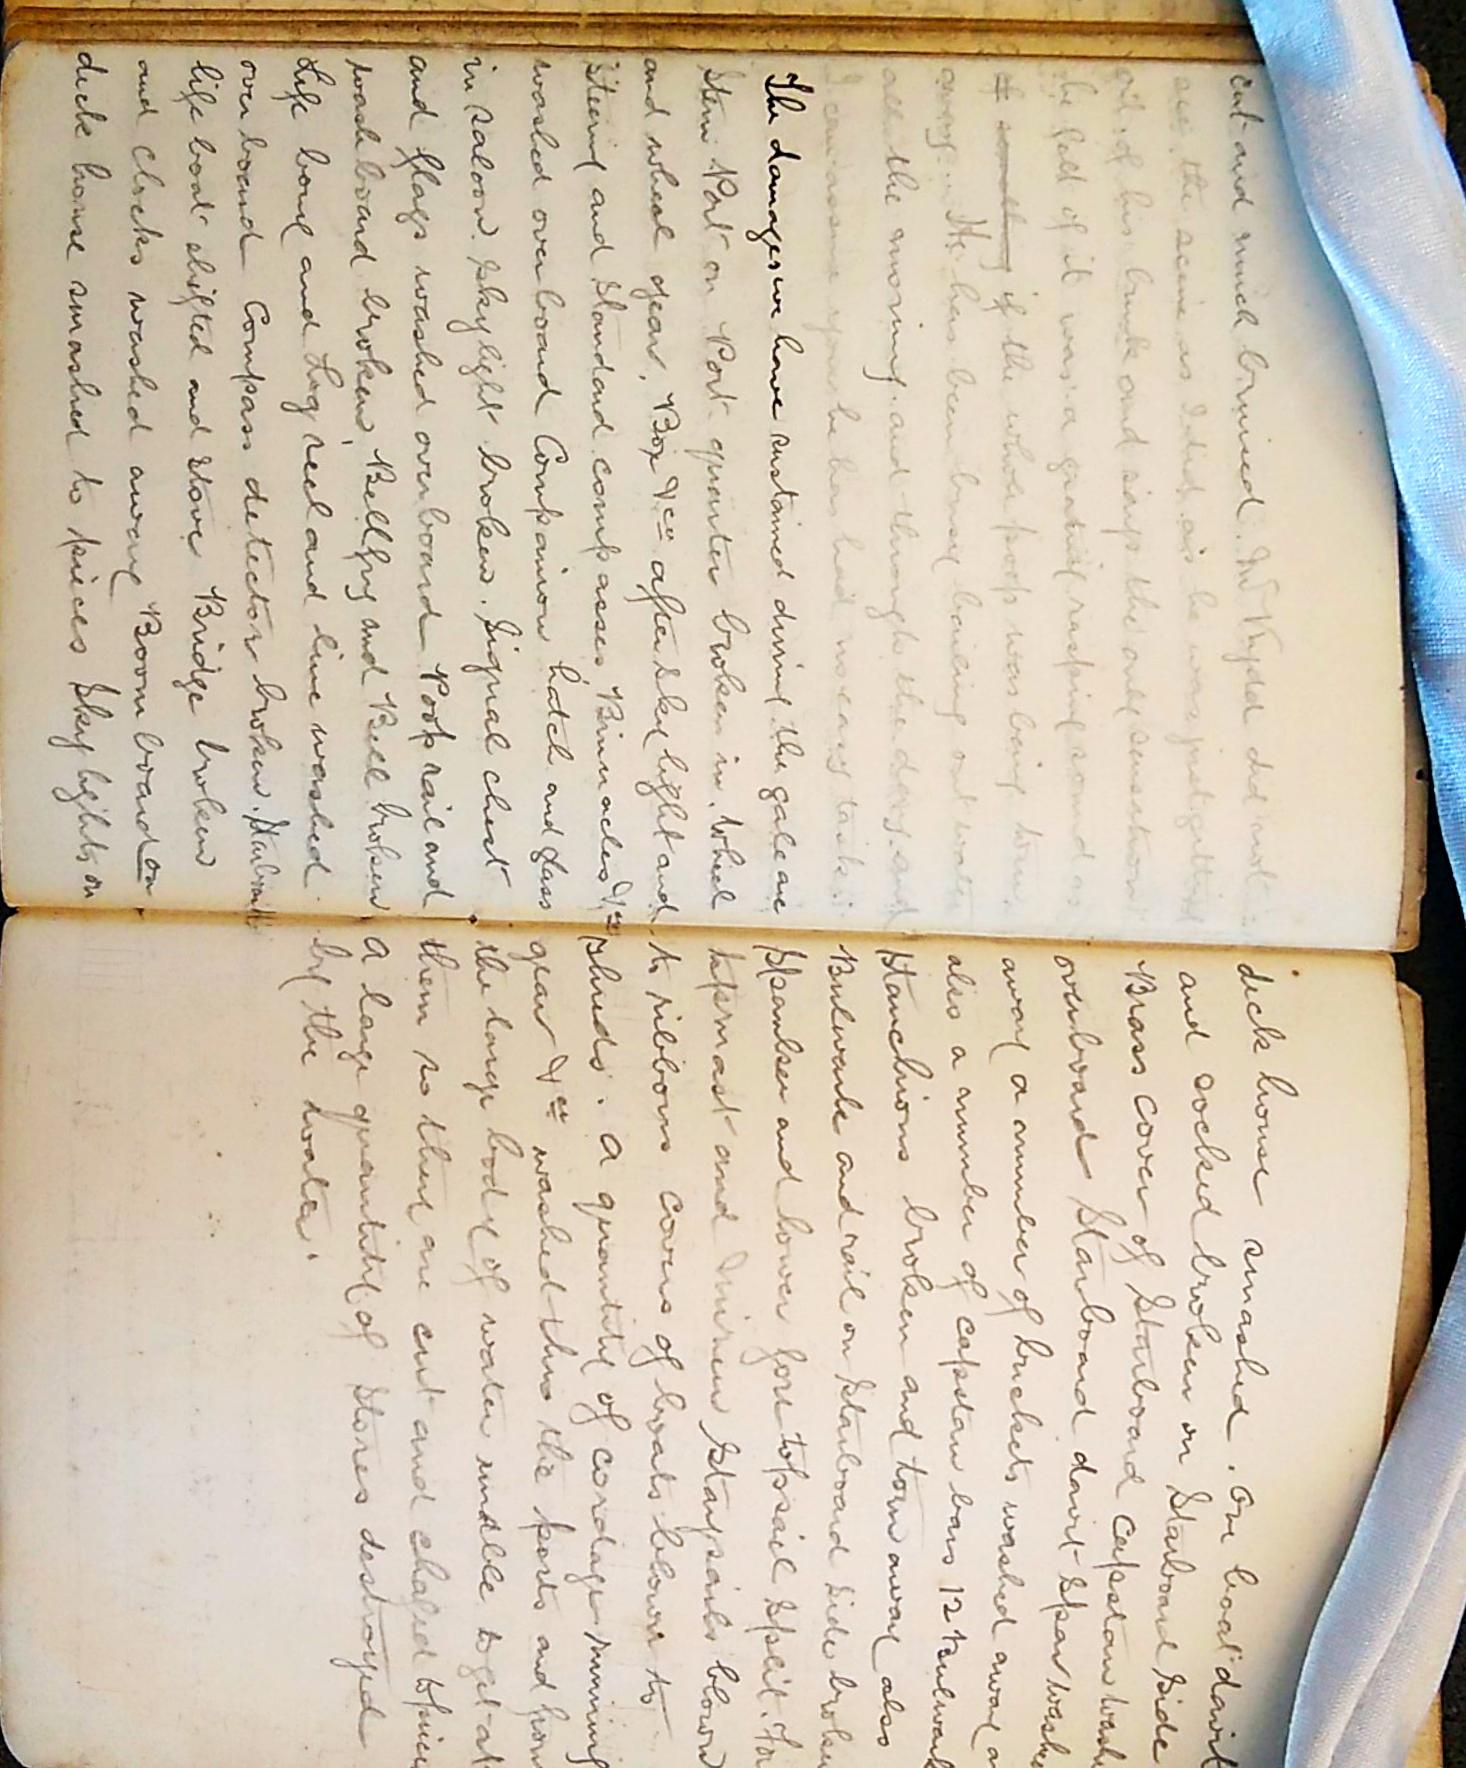 cut and much bruised. Mr Ryder did not
see the scene as I did, as he was just getting
out of his bunk and says the only sensation
he felt of it was a grating rasping sound as
if something if the whole poop was being torn
away. He has been busy bailing out water
all the morning and through the day, and
I can assure you he has had no easy task.
The damages we have sustained during the gale are
Stern Port on Port quarter broken in. Wheel
and wheel gear, Box &co after sky light and
Steering and Standard compasses, Binnacles &co
washed overboard Companion hatch and glass
in saloon skylight broken. Signal chest
and flags washed overboard Poop rail and
washboard broken, Bellfry and Bell broken
Life bouy and Log reel and line washed
overboard Compass detector broken. Starboard
life boat shifted and stove Bridge broken
and chocks washed away Boom board on
deck house smashed to pieces Sky lights on
deck house smashed. One boat davit
and socked broken on Starboard Side
Brass cover of Starboard Capstan washed
overboard Starboard davit Spar washed
away a number of buckets washed away
also a number of capstan bars 12 Bulwark
Stanchions broken and torn away also
Bulwarks and rail on Starboard Side broken
Spanker and lower fore topsail Split. Fore
topmast and Mizen Staysails blown
to ribbons covers of boats blown to
shreds. A quantity of cordage running
gear &co washed thro the ports and from
the large body of water unable to get at
them so they are cut and chafed to pieces
A large quantity of Stores destroyed
by the water.